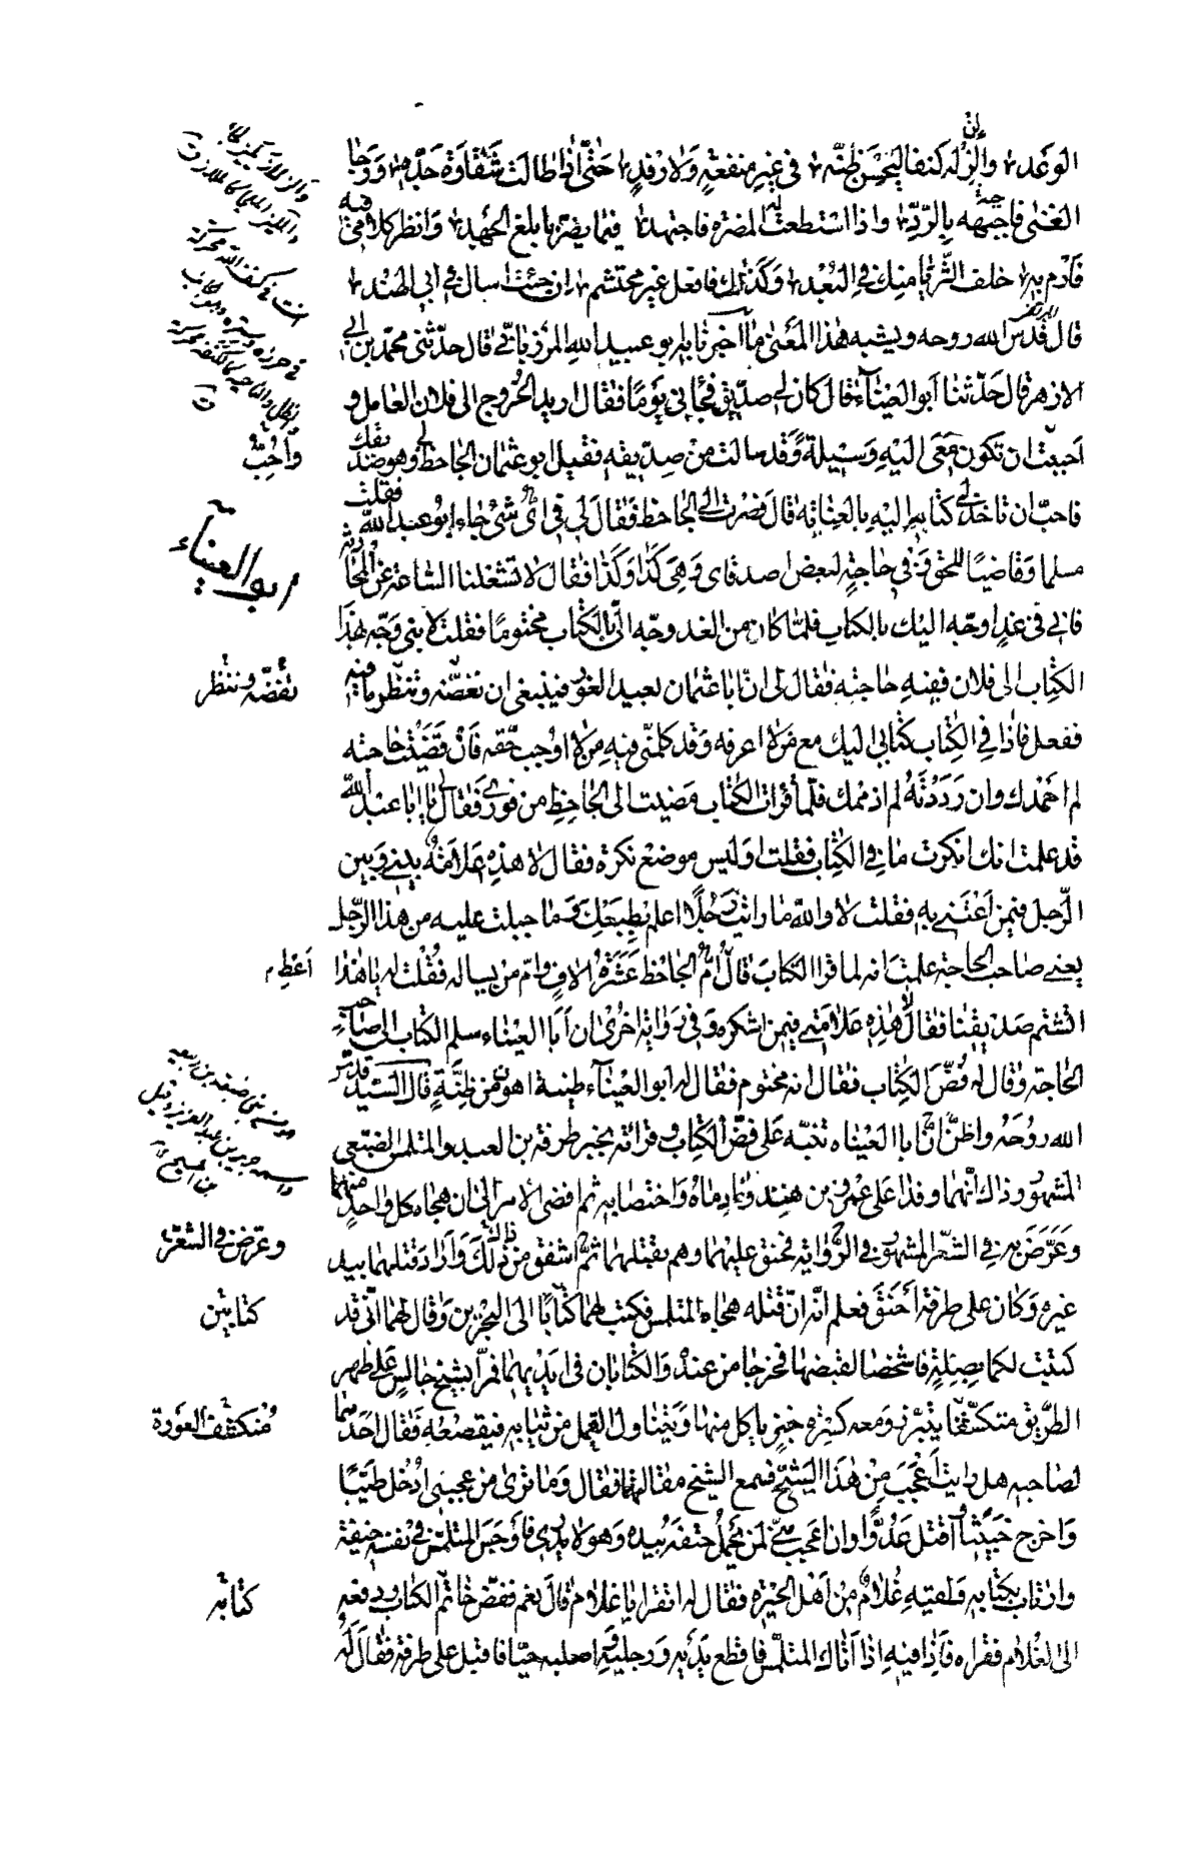 الوعد، وانزل له كنفا ليحسن ظنه، في غير منفعة ولا رفد، حتى اذا طالت شقاوة جده، ورجا
الغنى فاجبهه بالرد، واذا استطعت له المضرة فاجتهد، فيما يضر بابلغ الجهد، وانظر كلامي فيه
فارم به، خلف الثريا منك في البعد، وكذاك فافعل غير محتشم، ان جئت اسال في ابي الهند،
قال قدس الله روحه ويشبه هذا المعنى ما اخبرنا به ابو عبيد الله المرزباني قال حدثني محمد بن ابي
الازهر قال حدثنا ابو العيناء قال كان لي صديق فجاءني يوما فقال اريد الخروج الى فلان العامل و
احببت ان تكون معي اليه وسيلة وقد سالت من صديقه فقيل ابو عثمان الجاحظ وهو صديقك
فاحب ان تاخذ لي كتابه اليه بالعناية قال فصرت الى الجاحظ فقال لي في اي شئ جاء ابو عبد الله فقلت
مسلما وقاضيا للحق وفي حاجة لبعض اصدقائي وهي كذا وكذا فقال لا تشغلنا الساعة عن المحادثة
فاني في غد اوجه اليك بالكتاب فلما كان من الغد وجه الي بالكتاب مختوما فقلت لابني وجه بهذا
الكتاب الى فلان ففيه حاجته فقال لي ان ابا عثمان بعيد الغور فينبغي ان تفضه وتنظر ما فيه
ففعل فاذا في الكتاب كتابي اليك مع من لا اعرفه وقد كلمني فيه من لا اوجب حقه فان قضيت حاجته
لم احمدك وان رددته لم اذممك فلما قرات الكتاب مضيت الى الجاحظ من فوري فقال لي يا ابا عبد الله
قد علمت انك انكرت ما في الكتاب فقلت اوليس موضع نكرة فقال لا هذه علامة بيني وبين
الرجل فيمن اعتني به فقلت لا والله ما رايت رجلا اعلم بطبعك وما جبلت عليه من هذا الرجل
يعني صاحب الحاجة علمت انه لما قرا الكتاب قال ام الجاحظ عشرة الاف وام من يساله فقلت له يا هذا
اتشتم صديقنا فقال لا هذه علامتي فيمن اشكره وفي رواية اخرى ان ابا العيناء سلم الكتاب الى صاحب
الحاجة وقال له فض الكتاب فقال انه مختوم فقال له ابو العيناء طينة اهون من ظنة قال السيد قدس
الله روحه واظن ان ابا العيناء تنبه على فض الكتاب وقرائه بخبر طرفة بن العبد والمتلمس الضبعي
المشهور وذاك انهما وفدا على عمرو بن هند ونادماه واختصا به ثم افضى الامر الى ان هجاه كل واحد منهما
وعرض به في الشعر المشهور في الرواية فحنق عليهما وهم بقتلهما ثم اشفق من ذلك واراد قتلهما بيد
غيره وكان على طرفة احنق فعلم انه ان قتله هجاه المتلمس فكتب لهما كتابا الى البحرين وقال لهما اني قد
كتبت لكما بصلة فاشخصا لقبضها فخرجا من عنده والكتابان في ايديهما فمرا بشيخ جالس على ظهر
الطريق متكشفا يتبرز ومعه كسرة خبز ياكل منها ويتناول القمل من ثيابه فيقصعه فقال احدهما
لصاحبه هل رايت اعجب من هذا الشيخ فسمع الشيخ مقالتهما فقال وما ترى من عجبي ادخل طيبا
واخرج خبيثا واقتل عدوا وان اعجب مني لمن يحمل حتفه بيده وهو لا يدري فاوجس المتلمس في نفسه خيفة
وارتاب بكتابه ولقيه غلام من اهل الحيرة فقال له اتقرا يا غلام قال نعم ففض خاتم الكتاب ودفعه
الى الغلام فقراه فاذا فيه اذا اتاك المتلمس فاقطع يديه ورجليه واصلبه حيا فاقبل على طرفة فقال له
واحب
ابو العيناء
نفضه وننظر
اعظم
وعرض في الشعر
كتابين
منكشف العورة
كتابه